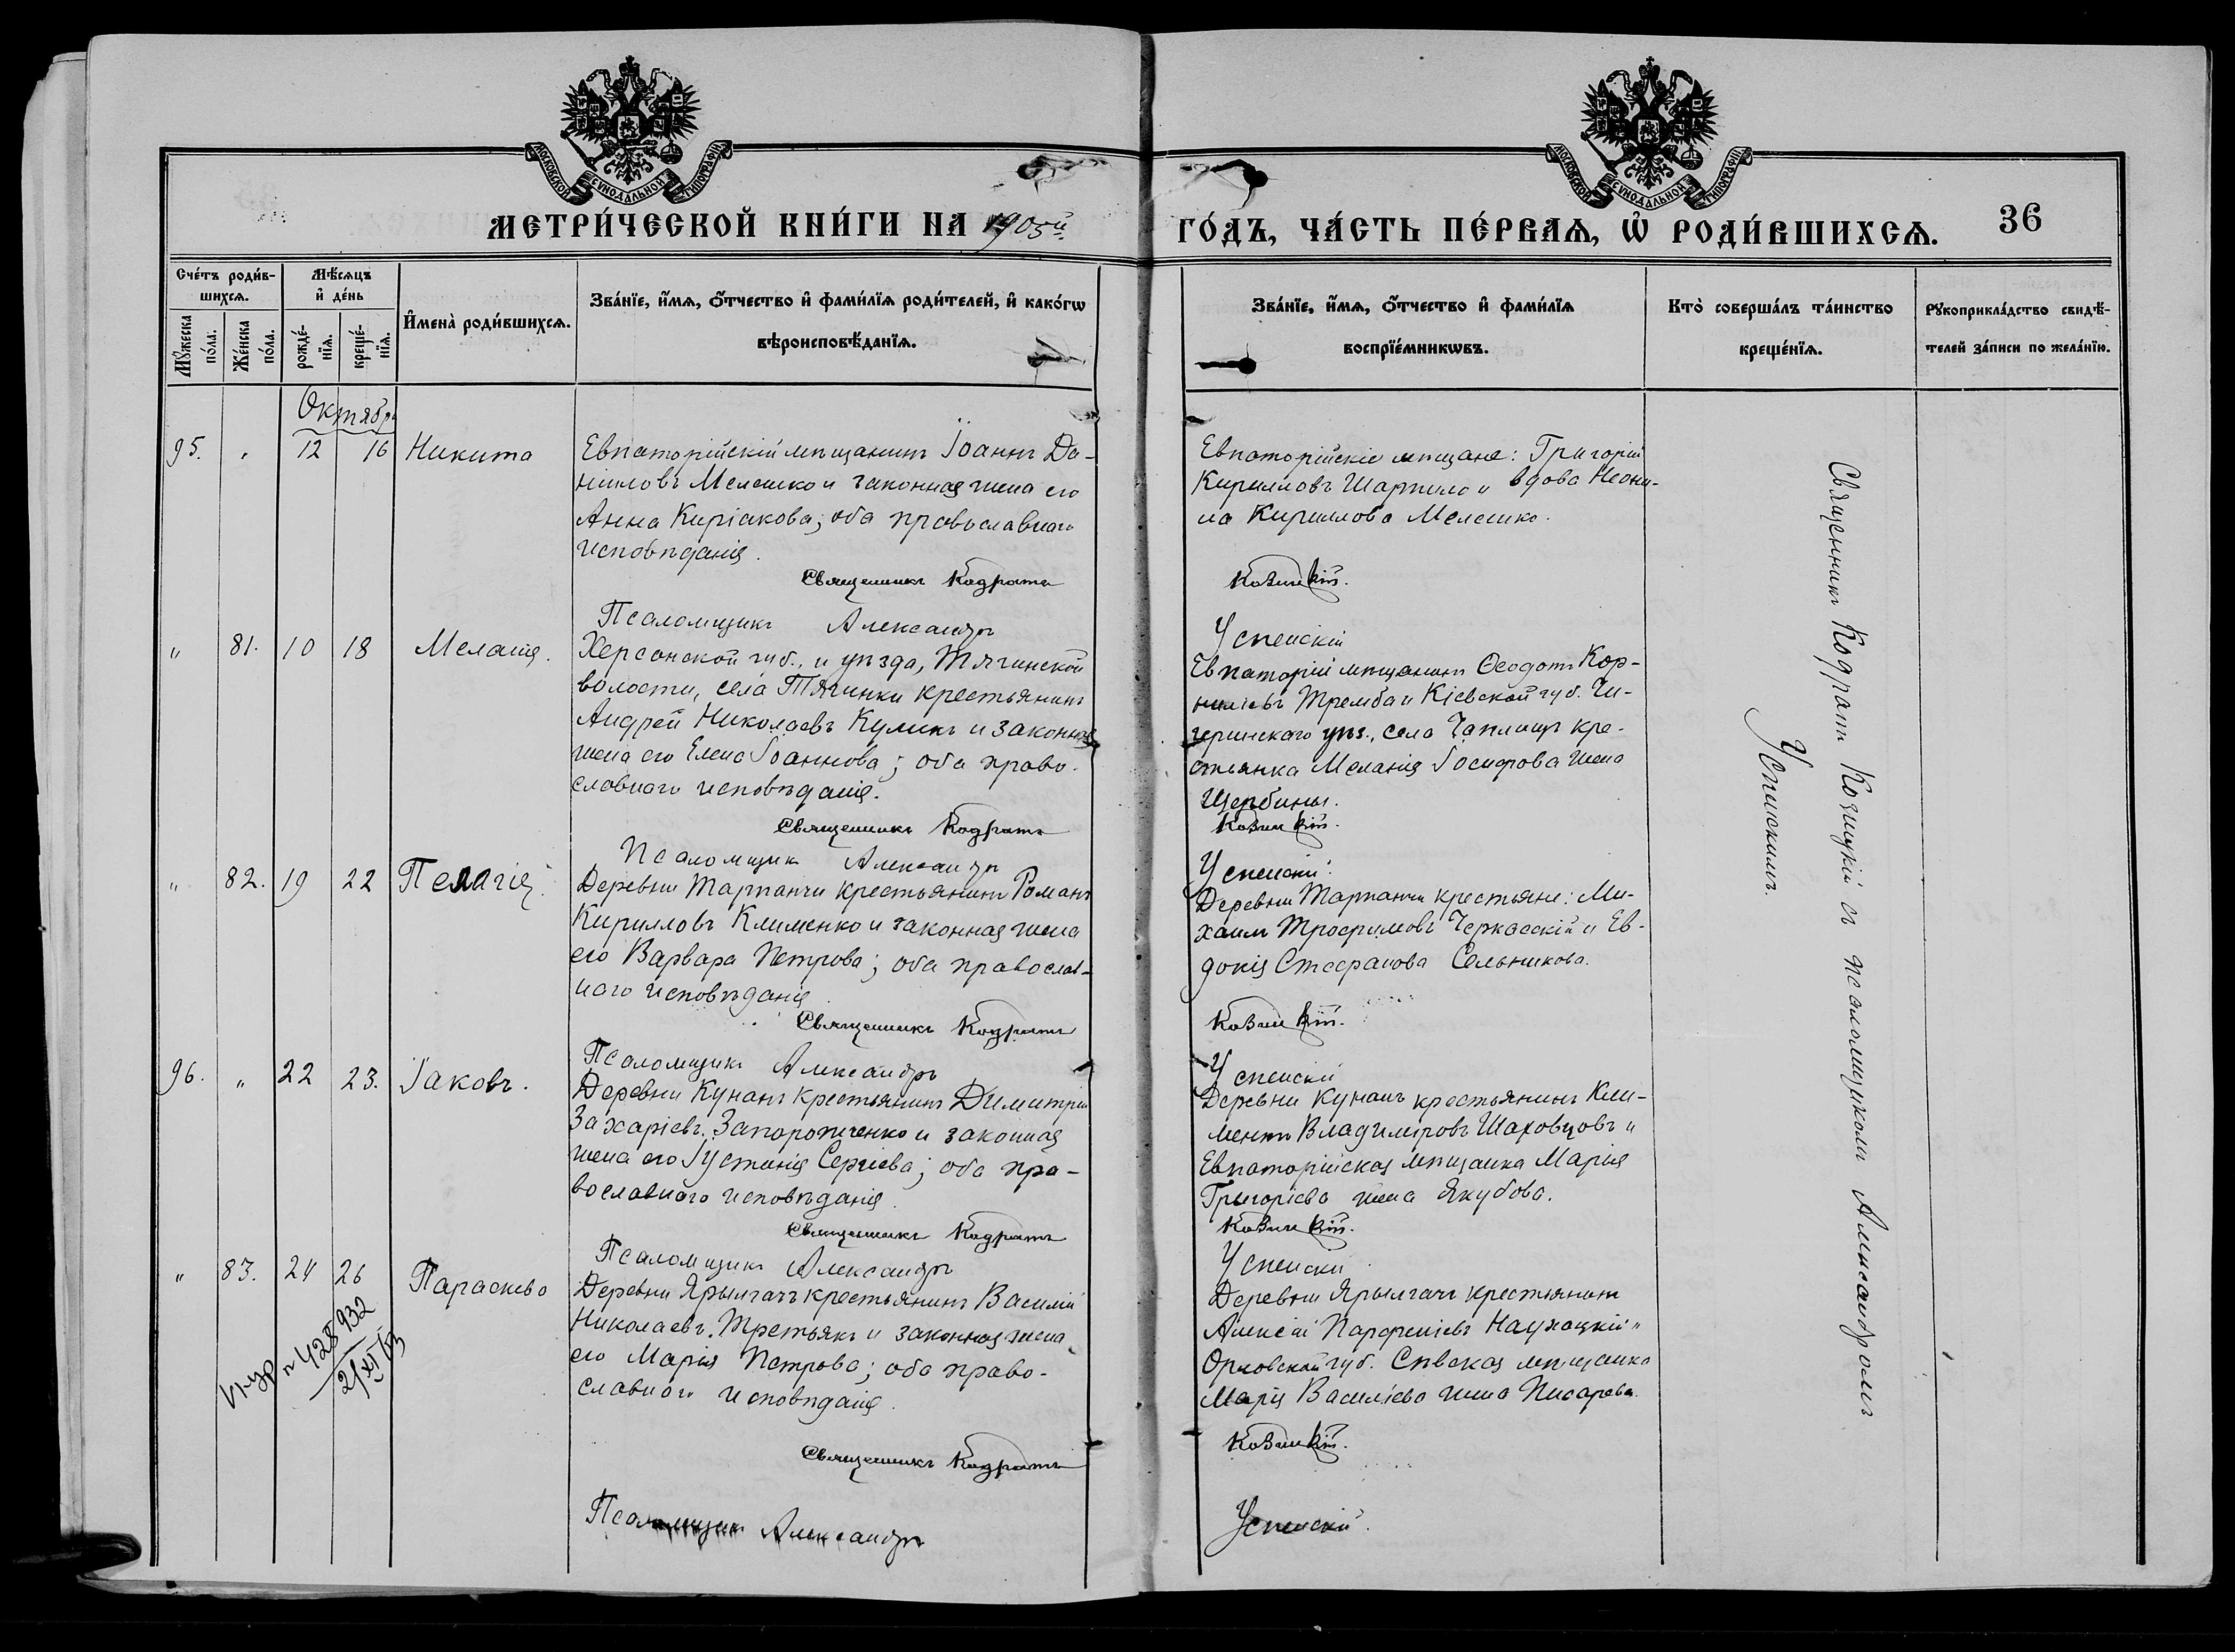 МОСКОВСКОЙ СѴНОДАЛЬНОЙ ТИПОГРАФІИ
МОСКОВСКОЙ СѴНОДАЛЬНОЙ ТИПОГРАФІИ
МЕТРИ́ЧЕСКОЙ КНИ́ГИ НА 1905й
ГО́ДЪ, ЧА́СТЬ ПЕ́РВАѦ, Ѡ҆ РОДИ́ВШИХСѦ. 36
Сче́тъ роди́в-
шихсѧ.
Мꙋ́жеска по́ла.
Же́нска по́ла.
Мѣ́сѧцъ
и҆ де́нь
рожде́-
нїѧ.
креще́-
нїѧ.
И҆мена̀ роди́вшихсѧ.
Зва́нїе, и҆́мѧ, ѻ҆́тчество и҆ фами́лїѧ роди́телей, и҆ како́гѡ
вѣроисповѣ́данїѧ.
Зва́нїе, и҆́мѧ, ѻ҆́тчество и҆ фами́лїѧ
воспрїе́мникѡвъ.
Кто̀ соверша́лъ та́инство
креще́нїѧ.
Рꙋкоприкла́дство свидѣ́-
телей за́писи по жела́нїю.
Октябрь
95. " 12 16 Никита
Евпаторійскій мѣщанинъ Іоаннъ Да-
ниловъ Мелешко и законная жена его
Анна Киріакова; оба православнаго
исповѣданія.
Священникъ Кодратъ
Псаломщикъ Александръ
Евпаторійскіе мѣщане: Григорій
Кирилловъ Шарпило и вдова Неони-
ла Кириллова Мелешко.
Козицкій.
Успенскій
" 81. 10 18 Меланія.
Херсонской губ., и уѣзда, Тягинской
волости, села Тягинки крестьянинъ
Андрей Николаевъ Куликъ и законная
жена его Елена Іоаннова; оба право-
славнаго исповѣданія.
Священникъ Кодратъ
Псаломщикъ Александръ
Евпаторій мѣщанинъ Ѳеодотъ Кор-
нилiевъ Трембач Кіевской губ. Чи-
гиринскаго уѣз., села Чаплищъ кре-
стьянка Меланія Іосифова жена
Щербины.
Козицкій.
Успенскій.
" 82. 19 22 Пелагія.
Деревни Тарпанчи крестьянинъ Романъ
Кирилловъ Клименко и законная жена
его Варвара Петрова; оба православ-
наго исповѣданія.
Священникъ Кодратъ
Псаломщикъ Александръ
Деревни Тарпанчи крестьяне: Ми-
хаилъ Трофимовъ Черкасскій и Ев-
докія Стефанова Сельникова.
Козицкій.
Успенскій
96. " 22 23. Іаковъ.
Деревни Кунанъ крестьянинъ Димитрій
Захаріевъ Запорожченко и законная
жена его Іустинія Сергіева; оба пра-
вославнаго исповѣданія.
Священникъ Кодратъ
Псаломщикъ Александръ
Деревни Кунанъ крестьянинъ Кли-
ментъ Владиміровъ Шаховцовъ и
Евпаторійская мѣщанка Марія
Григоріева жена Якубова.
Козицкій.
Успенскій
" 83. 24 26 Параскева
№ 428932
21/XI/63
Деревни Ярылгачъ крестьянинъ Василій
Николаевъ Третьякъ и законная жена
его Марія Петрова; оба право-
славнаго исповѣданія.
Священникъ Кодратъ
Псаломщикъ Александръ
Деревни Ярылгачъ крестьянинъ
Алексій Парфеніевъ Наухацкій и
Орловской губ. Сѣвская мѣщанка
Марія Василіева жена Писарева.
Козицкій.
Успенскій.
Священникъ Кодратъ Козицкій съ псаломщикомъ Александромъ
Успенскимъ.